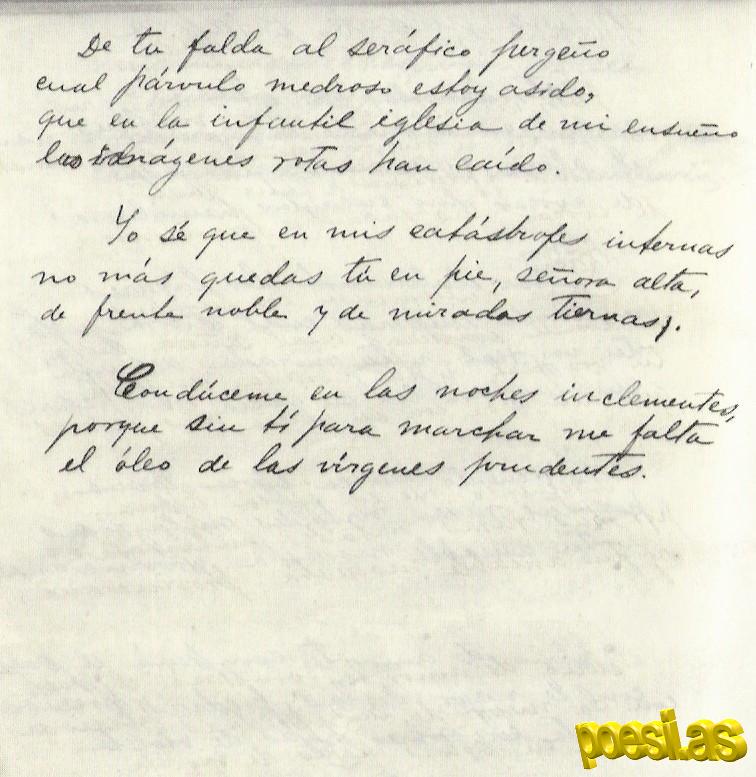 De tu falda al seráfico pergeño
cual párvulo medroso estoy asido,
que en la infantil iglesia de mi ensueño
las imágenes rotas han caído.
Yo sé que en mis catástrofes internas
no más quedas tú en pie, señora alta,
de frente noble y de miradas tiernas.
Condúceme en las noches inclementes,
porque sin tí para marchar me falta
el óleo de las vírgenes prudentes.
poesi.as